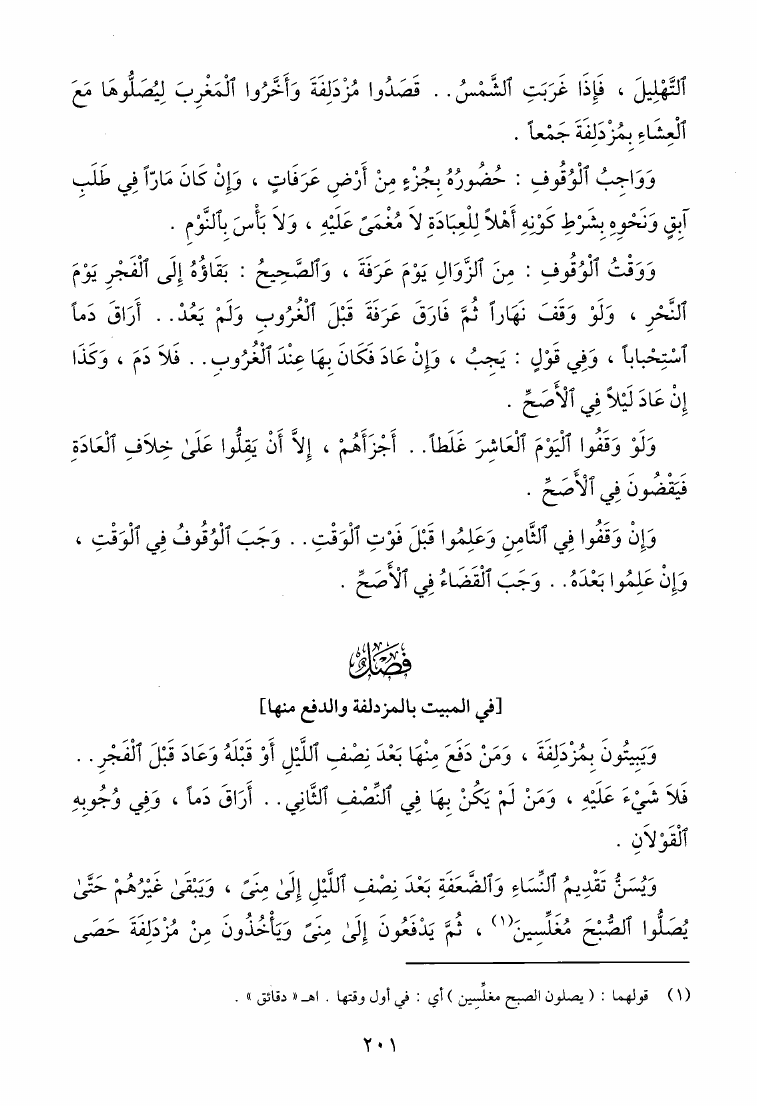 ٱلتَّهْلِيلَ ، فَإِذَا غَرَبَتِ ٱلشَّمْسُ. . قَصَدُوا مُزْدَلِفَةَ وَأَخَّرُوا ٱلْمَغْرِبَ لِيُصَلُّوهَا مَعَ
ٱلْعِشَاءِ بِمُزْدَلِفَةَ جَمْعاً .
وَوَاجِبُ ٱلْوُقُوفِ : حُضُورُهُ بِجُزْءٍ مِنْ أَرْضِ عَرَفَاتٍ ، وَإِنْ كَانَ مَارّاً فِي طَلَبِ
آبِقٍ وَنَحْوِهِ بِشَرْطِ كَوْنِهِ أَهْلاً لِلْعِبَادَةِ لاَ مُغْمَىً عَلَيْهِ ، وَلاَ بَأْسَ بِٱلنَّوْمِ .
وَوَقْتُ ٱلْوُقُوفِ : مِنَ ٱلزَّوَالِ يَوْمَ عَرَفَةَ ، وَٱلصَّحِيحُ : بَقَاؤُهُ إِلَى ٱلْفَجْرِ يَوْمَ
ٱلنَّحْرِ ، وَلَوْ وَقَفَ نَهَاراً ثُمَّ فَارَقَ عَرَفَةَ قَبْلَ ٱلْغُرُوبِ وَلَمْ يَعُدْ. . أَرَاقَ دَماً
ٱسْتِحْبَاباً ، وَفِي قَوْلٍ : يَجِبُ ، وَإِنْ عَادَ فَكَانَ بِهَا عِنْدَ ٱلْغُرُوبِ. . فَلاَ دَمَ ، وَكَذَا
إِنْ عَادَ لَيْلاً فِي ٱلأَصَحِّ .
وَلَوْ وَقَفُوا ٱلْيَوْمَ ٱلْعَاشِرَ غَلَطاً. . أَجْزَأَهُمْ ، إِلاَّ أَنْ يَقِلُّوا عَلَىٰ خِلاَفِ ٱلْعَادَةِ
فَيَقْضُونَ فِي ٱلأَصَحِّ .
وَإِنْ وَقَفُوا فِي ٱلثَّامِنِ وَعَلِمُوا قَبْلَ فَوْتِ ٱلْوَقْتِ. . وَجَبَ ٱلْوُقُوفُ فِي ٱلْوَقْتِ ،
وَإِنْ عَلِمُوا بَعْدَهُ. . وَجَبَ ٱلْقَضَاءُ فِي ٱلأَصَحِّ .
فَصْلٌ
[في المبيت بالمزدلفة والدفع منها]
وَيَبِيتُونَ بِمُزْدَلِفَةَ ، وَمَنْ دَفَعَ مِنْهَا بَعْدَ نِصْفِ ٱللَّيْلِ أَوْ قَبْلَهُ وَعَادَ قَبْلَ ٱلْفَجْرِ. .
فَلاَ شَيْءَ عَلَيْهِ ، وَمَنْ لَمْ يَكُنْ بِهَا فِي ٱلنِّصْفِ ٱلثَّانِي. . أَرَاقَ دَماً ، وَفِي وُجُوبِهِ
ٱلْقَوْلاَنِ .
وَيُسَنُّ تَقْدِيمُ ٱلنِّسَاءِ وَٱلضَّعَفَةِ بَعْدَ نِصْفِ ٱللَّيْلِ إِلَىٰ مِنَىً ، وَيَبْقَىٰ غَيْرُهُمْ حَتَّىٰ
يُصَلُّوا ٱلصُّبْحَ مُغَلِّسِينَ(١) ، ثُمَّ يَدْفَعُونَ إِلَىٰ مِنَىً وَيَأْخُذُونَ مِنْ مُزْدَلِفَةَ حَصَى
(١) قولهما : ( يصلون الصبح مغلِّسين ) أي : في أول وقتها . اهـ « دقائق » .
٢٠١